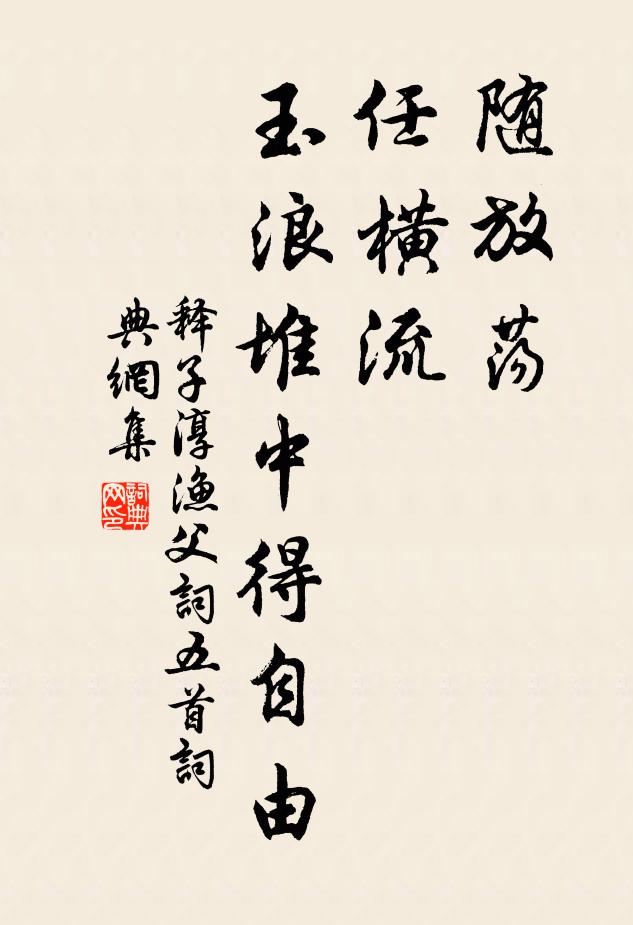 随放荡
任橫流
玉浪堆中得自由
释子淳漁父詞五首詞
典網集
詞典网印